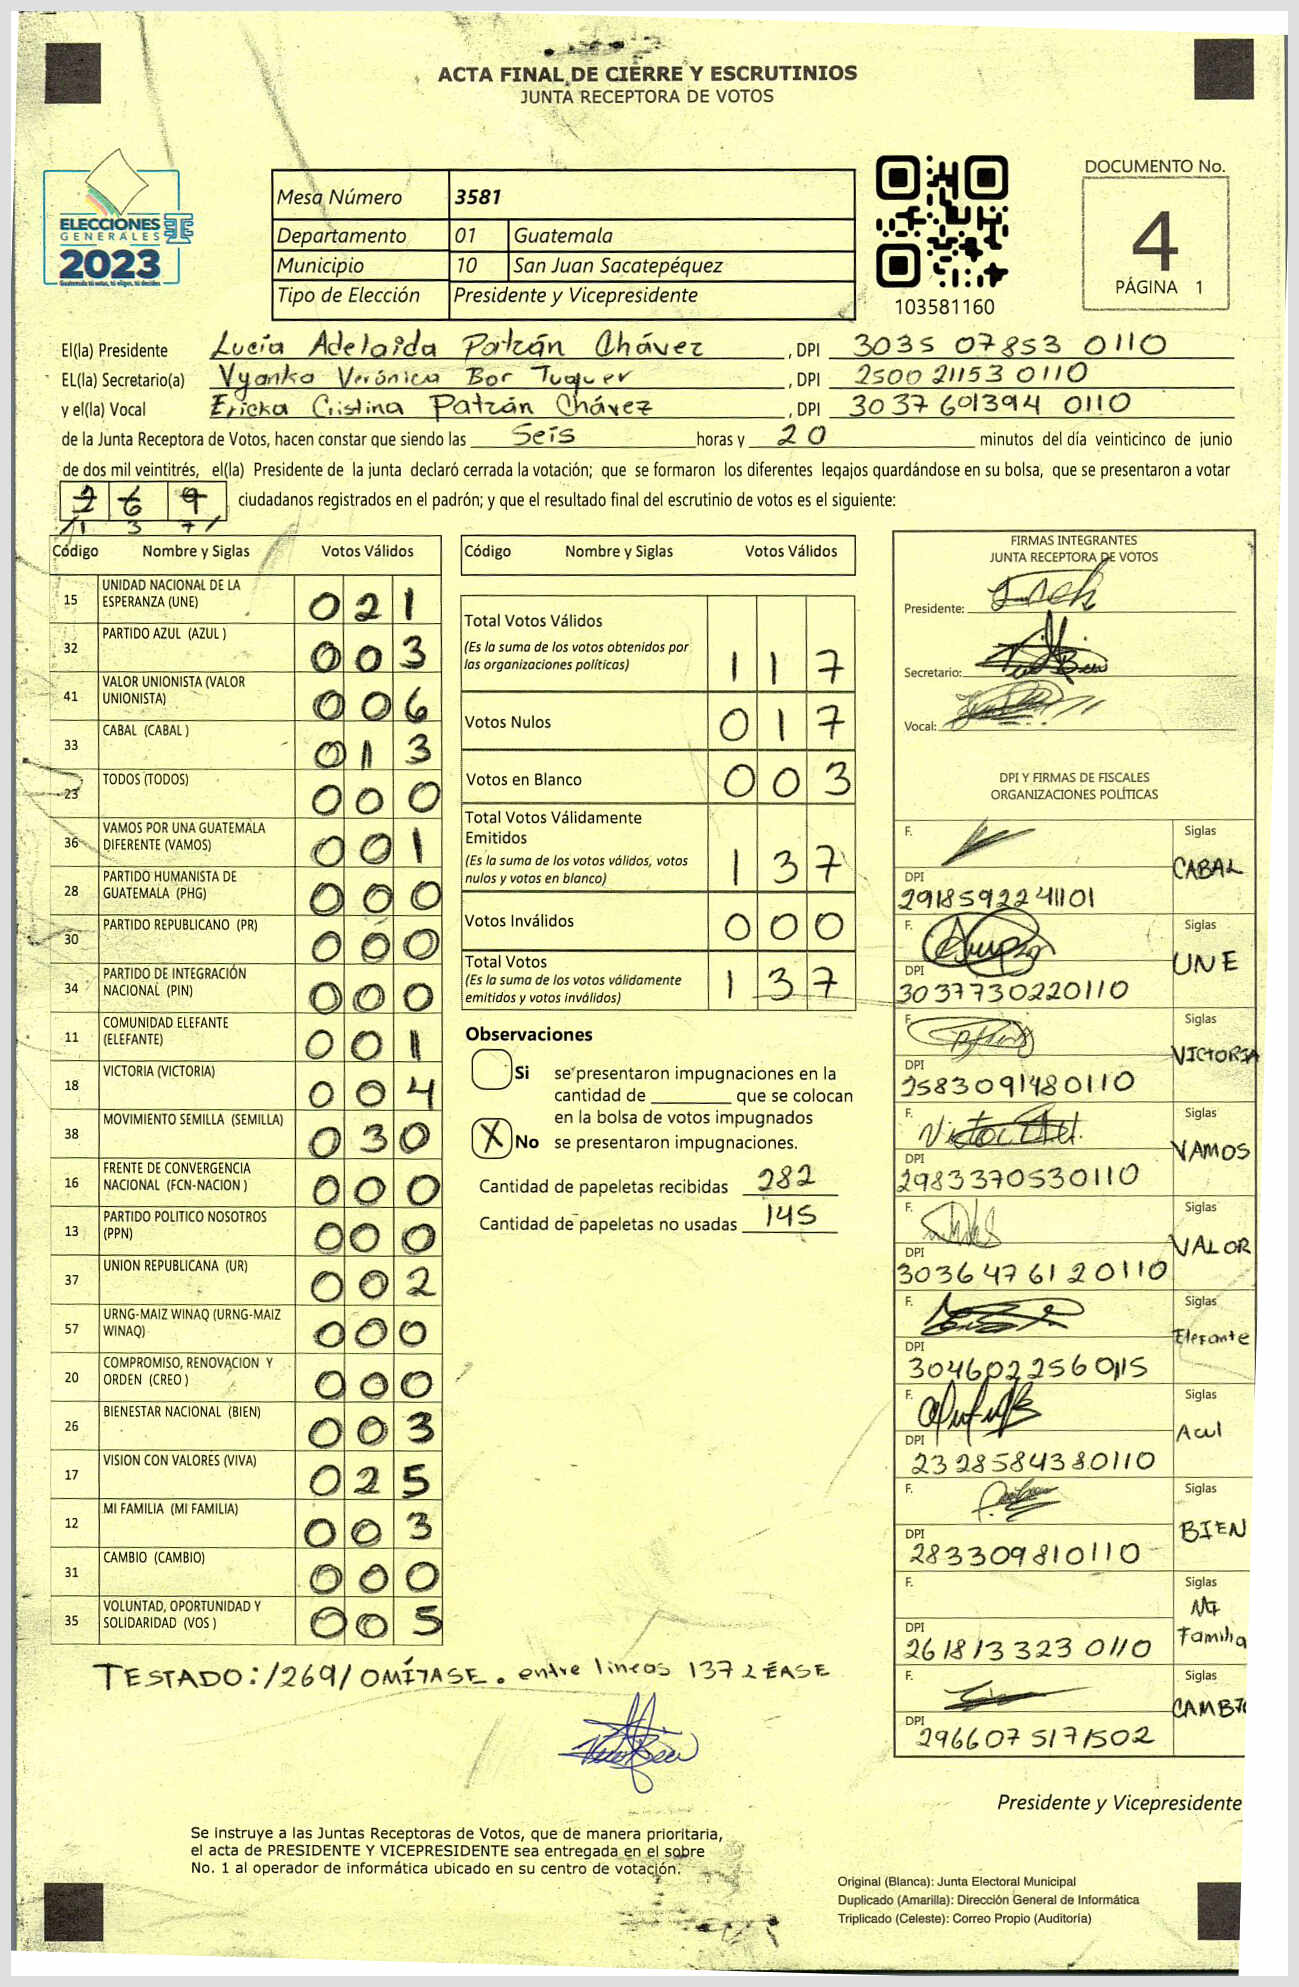 ACTA FINAL DE CIERRE Y ESCRUTINIOS
JUNTA RECEPTORA DE VOTOS
ELECCIONES
GENERALES
2023
Mesa Número 3581
Departamento 01 Guatemala
Municipio 10 San Juan Sacatepéquez
Tipo de Elección Presidente y Vicepresidente
103581160
DOCUMENTO No.
4
PÁGINA 1
El(la) Presidente Lucía Adelaida Patzán Chávez, DPI 3035 07853 0110
EL(la) Secretario(a) Vyanka Verónica Bor Tuquer, DPI 2500 21153 0110
y el(la) Vocal Ericka Cristina Patzán Chávez, DPI 3037 601394 0110
de la Junta Receptora de Votos, hacen constar que siendo las Seis horas y 20 minutos del día veinticinco de junio
de dos mil veintitrés, el(la) Presidente de la junta declaró cerrada la votación; que se formaron los diferentes legajos guardándose en su bolsa, que se presentaron a votar
2 6 9 ciudadanos registrados en el padrón; y que el resultado final del escrutinio de votos es el siguiente:
/1 3 7/
Código Nombre y Siglas Votos Válidos
15 UNIDAD NACIONAL DE LA ESPERANZA (UNE) 0 2 1
32 PARTIDO AZUL (AZUL ) 0 0 3
41 VALOR UNIONISTA (VALOR UNIONISTA) 0 0 6
33 CABAL (CABAL ) 0 1 3
23 TODOS (TODOS) 0 0 0
36 VAMOS POR UNA GUATEMALA DIFERENTE (VAMOS) 0 0 1
28 PARTIDO HUMANISTA DE GUATEMALA (PHG) 0 0 0
30 PARTIDO REPUBLICANO (PR) 0 0 0
34 PARTIDO DE INTEGRACIÓN NACIONAL (PIN) 0 0 0
11 COMUNIDAD ELEFANTE (ELEFANTE) 0 0 1
18 VICTORIA (VICTORIA) 0 0 4
38 MOVIMIENTO SEMILLA (SEMILLA) 0 3 0
16 FRENTE DE CONVERGENCIA NACIONAL (FCN-NACION ) 0 0 0
13 PARTIDO POLITICO NOSOTROS (PPN) 0 0 0
37 UNION REPUBLICANA (UR) 0 0 2
57 URNG-MAIZ WINAQ (URNG-MAIZ WINAQ) 0 0 0
20 COMPROMISO, RENOVACION Y ORDEN (CREO ) 0 0 0
26 BIENESTAR NACIONAL (BIEN) 0 0 3
17 VISION CON VALORES (VIVA) 0 2 5
12 MI FAMILIA (MI FAMILIA) 0 0 3
31 CAMBIO (CAMBIO) 0 0 0
35 VOLUNTAD, OPORTUNIDAD Y SOLIDARIDAD (VOS ) 0 0 5
Código Nombre y Siglas Votos Válidos
Total Votos Válidos
(Es la suma de los votos obtenidos por
las organizaciones políticas) 1 1 7
Votos Nulos 0 1 7
Votos en Blanco 0 0 3
Total Votos Válidamente
Emitidos
(Es la suma de los votos válidos, votos
nulos y votos en blanco) 1 3 7
Votos Inválidos 0 0 0
Total Votos
(Es la suma de los votos válidamente
emitidos y votos inválidos) 1 3 7
Observaciones
Si se presentaron impugnaciones en la
cantidad de ________ que se colocan
en la bolsa de votos impugnados
X No se presentaron impugnaciones.
Cantidad de papeletas recibidas 282
Cantidad de papeletas no usadas 145
FIRMAS INTEGRANTES
JUNTA RECEPTORA DE VOTOS
Presidente:
Secretario:
Vocal:
DPI Y FIRMAS DE FISCALES
ORGANIZACIONES POLÍTICAS
F. Siglas CABAL
DPI 2918592241101
F. Siglas UNE
DPI 3037730220110
F. Siglas VICTORIA
DPI 2583091480110
F. Siglas VAMOS
DPI 2983370530110
F. Siglas VALOR
DPI 3036476120110
F. Siglas Elefante
DPI 3046022560115
F. Siglas Acul
DPI 2328584380110
F. Siglas BIEN
DPI 283309810110
F. Siglas Mi Familia
DPI 2618133230110
F. Siglas CAMBIO
DPI 2966075171502
TESTADO: /269/ OMÍTASE. entre lineas 137 LÉASE
Presidente y Vicepresidente
Se instruye a las Juntas Receptoras de Votos, que de manera prioritaria,
el acta de PRESIDENTE Y VICEPRESIDENTE sea entregada en el sobre
No. 1 al operador de informática ubicado en su centro de votación.
Original (Blanca): Junta Electoral Municipal
Duplicado (Amarilla): Dirección General de Informática
Triplicado (Celeste): Correo Propio (Auditoría)